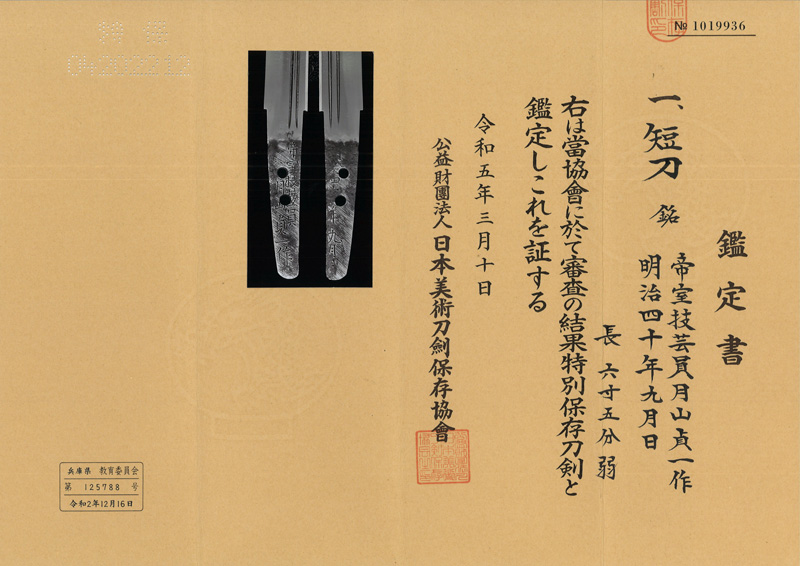 № 1019936
鑑定書
一、短刀 銘 帝室技芸員月山貞一作
明治四十年九月日
長 六寸五分弱
右は當協會に於て審査の結果特別保存刀剣と
鑑定しこれを証する
令和五年三月十日
公益財團法人日本美術刀劍保存協會
特 拵
04202212
兵庫県 教育委員会
第 125788 号
令和2年12月16日